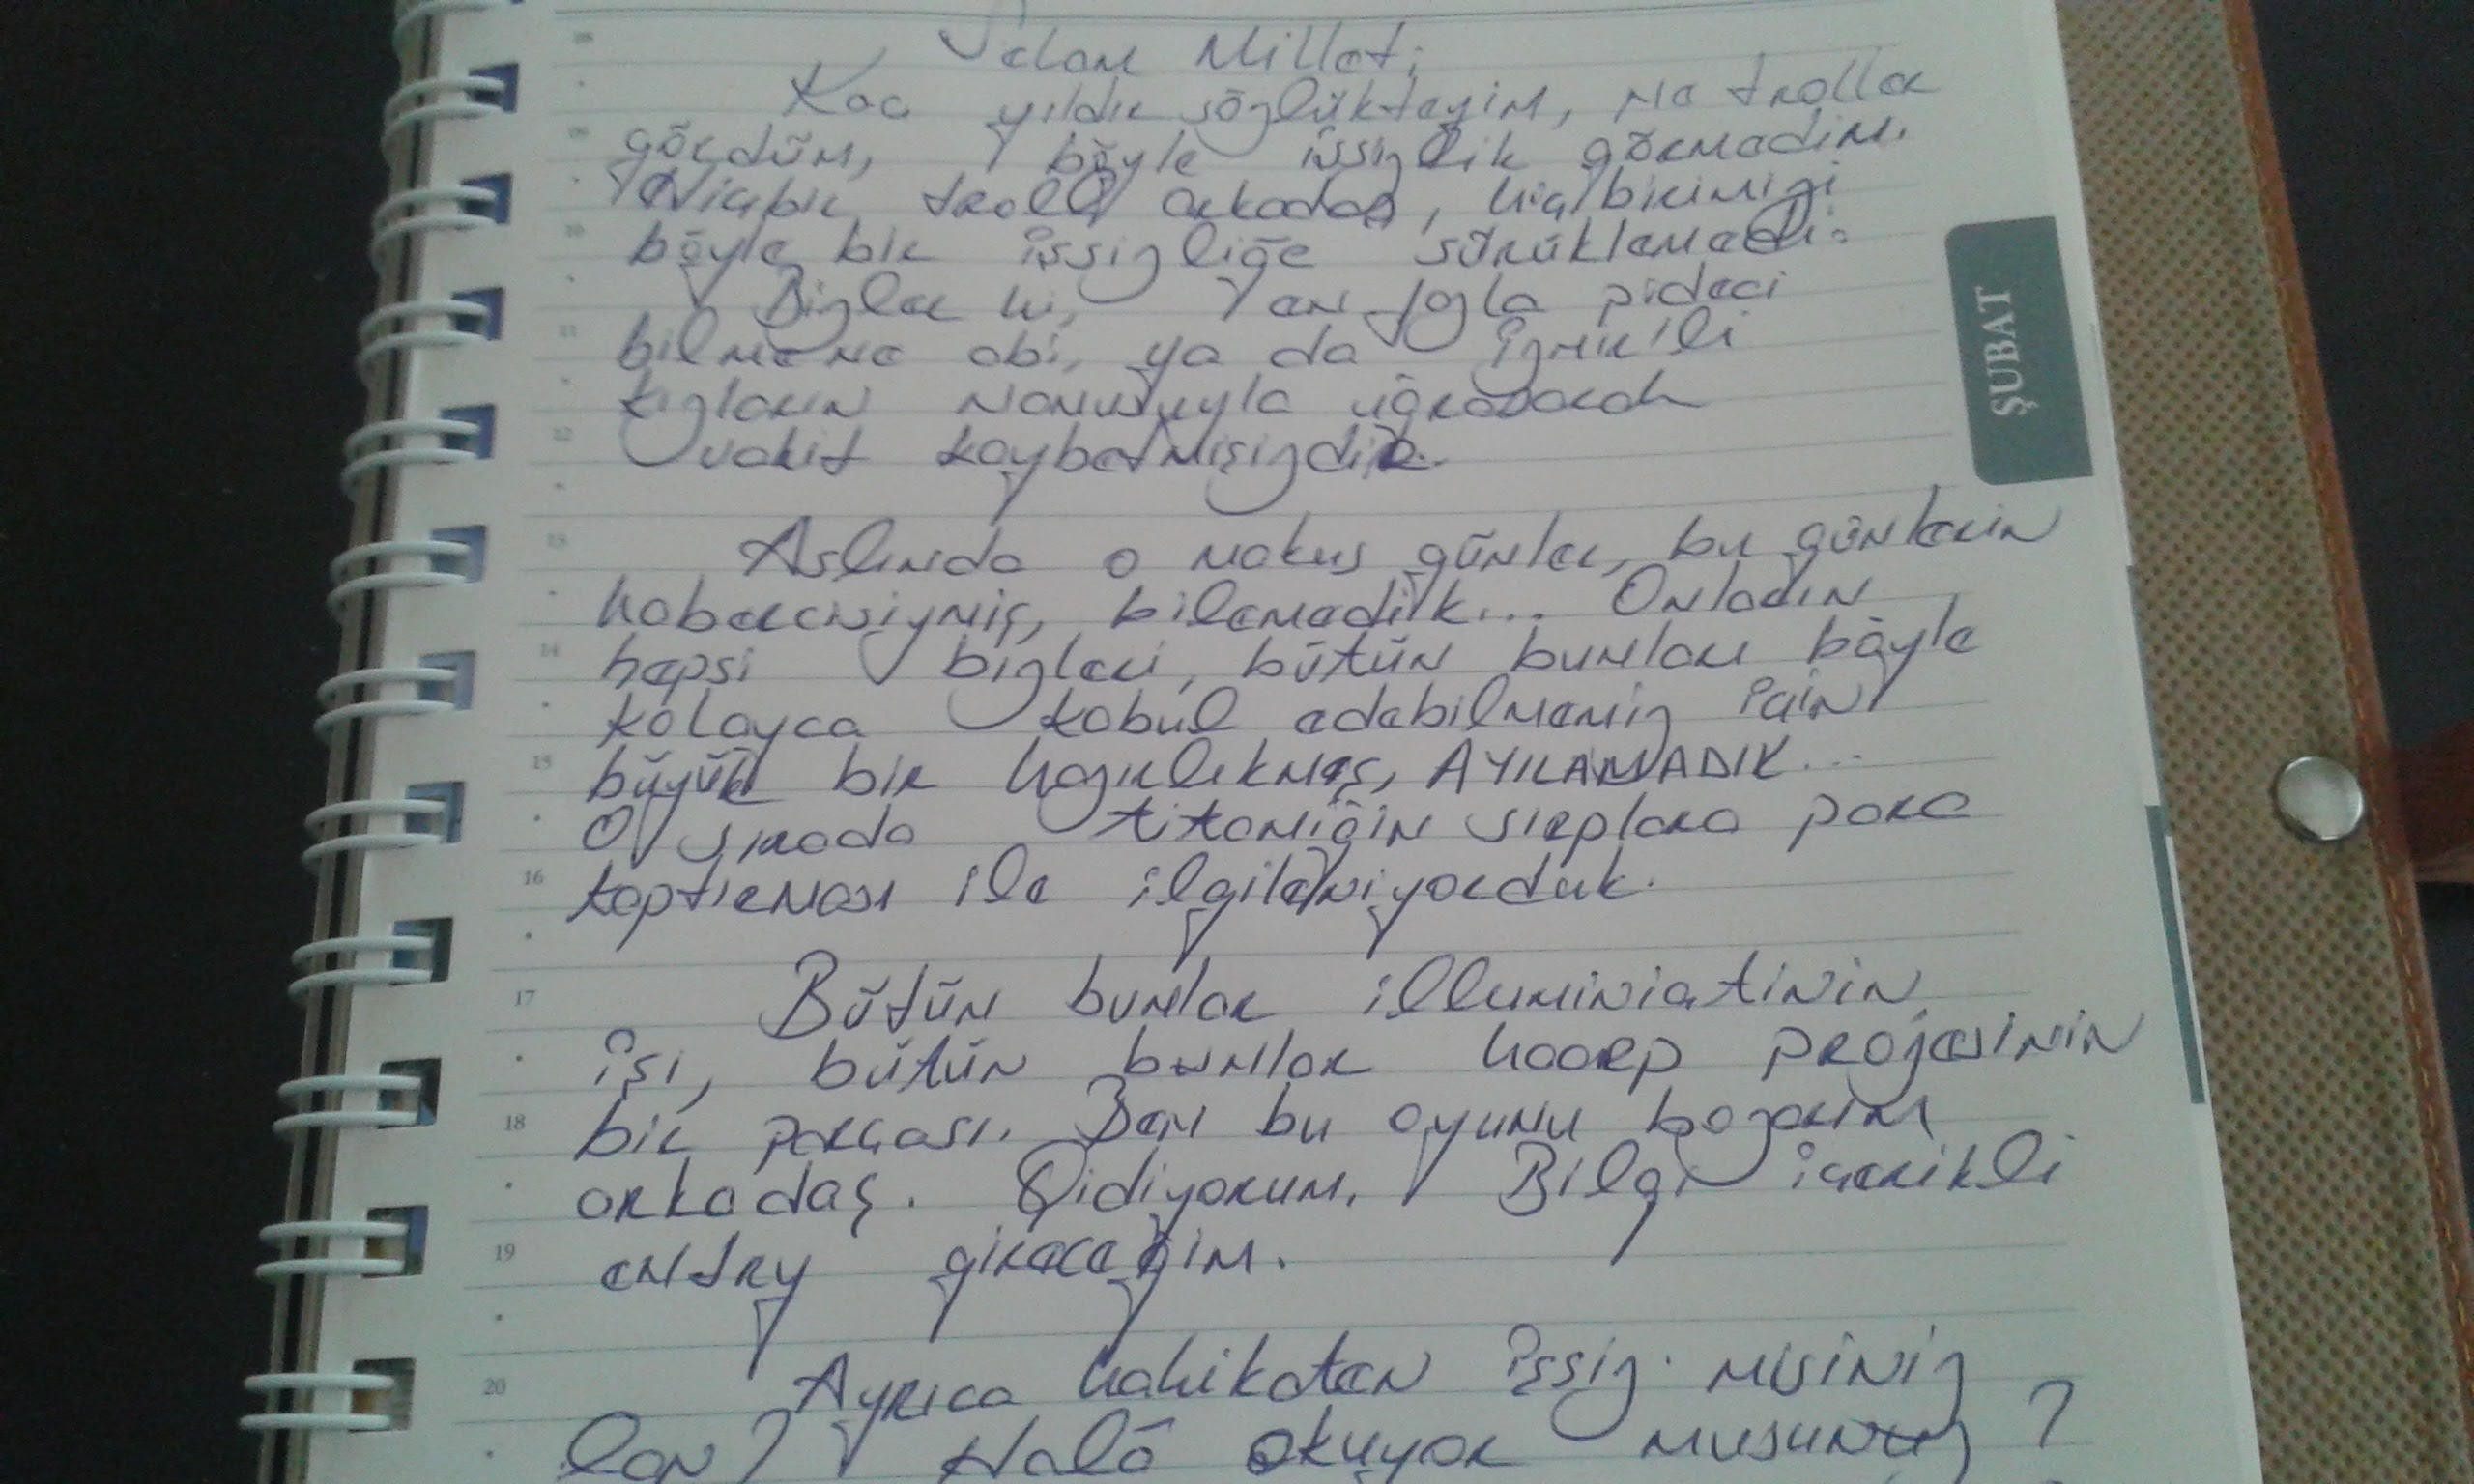 Selam Millet;
Kaç yıldır sözlükteyim, ne troller
gördüm, böyle işsizlik görmedim.
Hiçbir troll arkadaş, hiçbirimizi
böyle bir işsizliğe sürüklemedi.
Bizler ki, en fazla pideci
bilmene abi, ya da izmirli
kızların namusuyla uğraşarak
vakit kaybetmişizdir.
Aslında o makus günler, bu günlerin
habercisiymiş, bilemedik... Onların
hepsi bizleri, bütün bunları böyle
kolayca kabul edebilmemiz için
büyük bir hazırlıkmış, AYILAMADIK...
O sırada titaniğin sırplara para
kaptırması ile ilgileniyorduk.
Bütün bunlar illuminiatinin
işi, bütün bunlar haarp projesinin
bir parçası. Ben bu oyunu bozarım
arkadaş. Gidiyorum. Bilgi içerikli
entry gireceğim.
Ayrıca hakikaten işsiz misiniz
lan? Halâ okuyor musunuz?
ŞUBAT
09
10
11
12
13
14
15
16
17
18
19
20